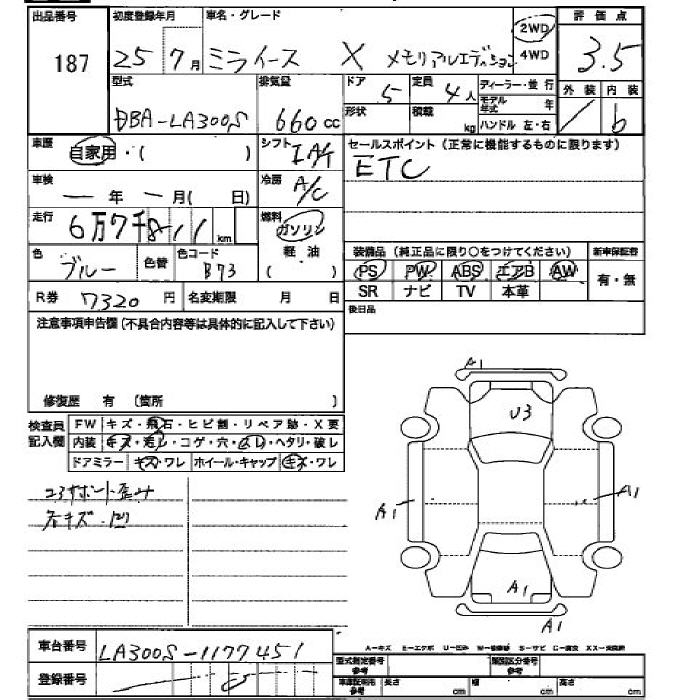 出品番号 初度登録年月 車名・グレード 2WD 評価点
187 25 7月 ミライース X メモリアルエディション 4WD 3.5
型式 排気量 ドア 5 定員 4人 ディーラー・並行 外装 内装
DBA-LA300S 660cc 形状 積載 kg モデル年式 年 b
ハンドル 左・右
車歴 自家用・( ) シフト IAT セールスポイント(正常に機能するものに限ります)
車検 ー年 ー月( 日) 冷房 A/C ETC
走行 6万7千811 km 燃料 ガソリン
軽油
( )
色 ブルー 色替 色コード B73 装備品(純正品に限り○をつけてください) 新車保証書
PS PW ABS エアB AW 有・無
R券 7320円 名変期限 月 日 SR ナビ TV 本革
注意事項申告欄(不具合内容等は具体的に記入して下さい) 後日品
修復歴 有 (箇所 )
検査員記入欄 FW キズ・飛石・ヒビ割・リペア跡・X要
内装 キズ・汚れ・コゲ・穴・ヘタリ・破レ
ドアミラー キズ・ワレ ホイール・キャップ キズ・ワレ
コアサポート歪み
キズ・凹
A1
U3
A1 A1
A1
A1
車台番号 LA300S-1177451
登録番号
A-キズ E-エクボ U-凹み S-サビ C-腐食
型式指定番号 参考 類別区分番号 参考
車庫証明用 参考 長さ cm 幅 cm 高さ cm